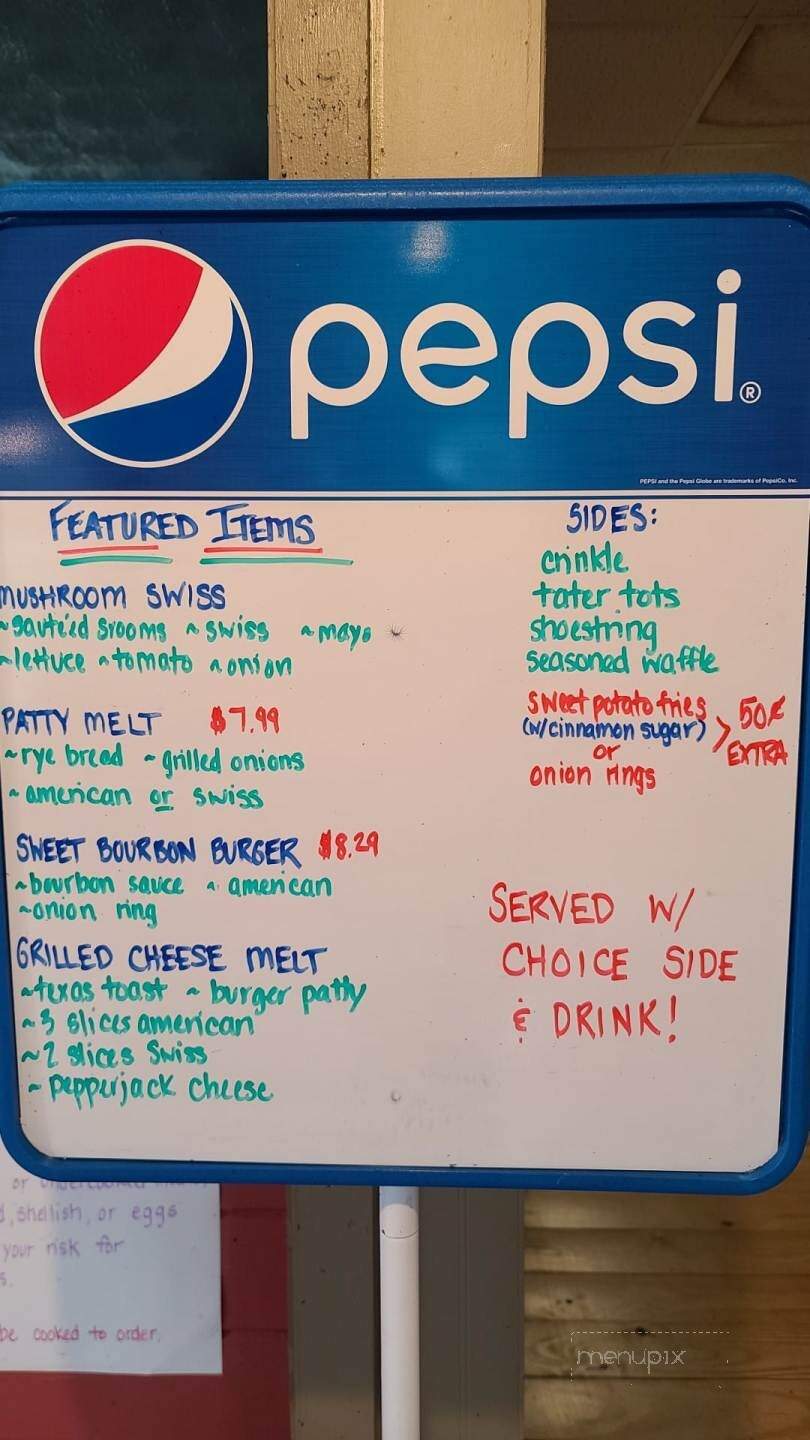 pepsi®
PEPSI and the Pepsi Globe are trademarks of PepsiCo, Inc.
FEATURED ITEMS
MUSHROOM SWISS
~sautéed srooms ~swiss ~mayo
~lettuce ~tomato ~onion
PATTY MELT $7.99
~rye bread ~grilled onions
~american or swiss
SWEET BOURBON BURGER $8.29
~bourbon sauce ~american
~onion ring
GRILLED CHEESE MELT
~texas toast ~burger patty
~3 slices american
~2 slices Swiss
~pepperjack cheese
SIDES:
crinkle
tater tots
shoestring
seasoned waffle
sweet potato fries
(w/cinnamon sugar) > 50¢
or EXTRA
onion rings
SERVED W/
CHOICE SIDE
& DRINK!
or undercooked
, shellish, or eggs
your risk for
s.
be cooked to order.
menupix